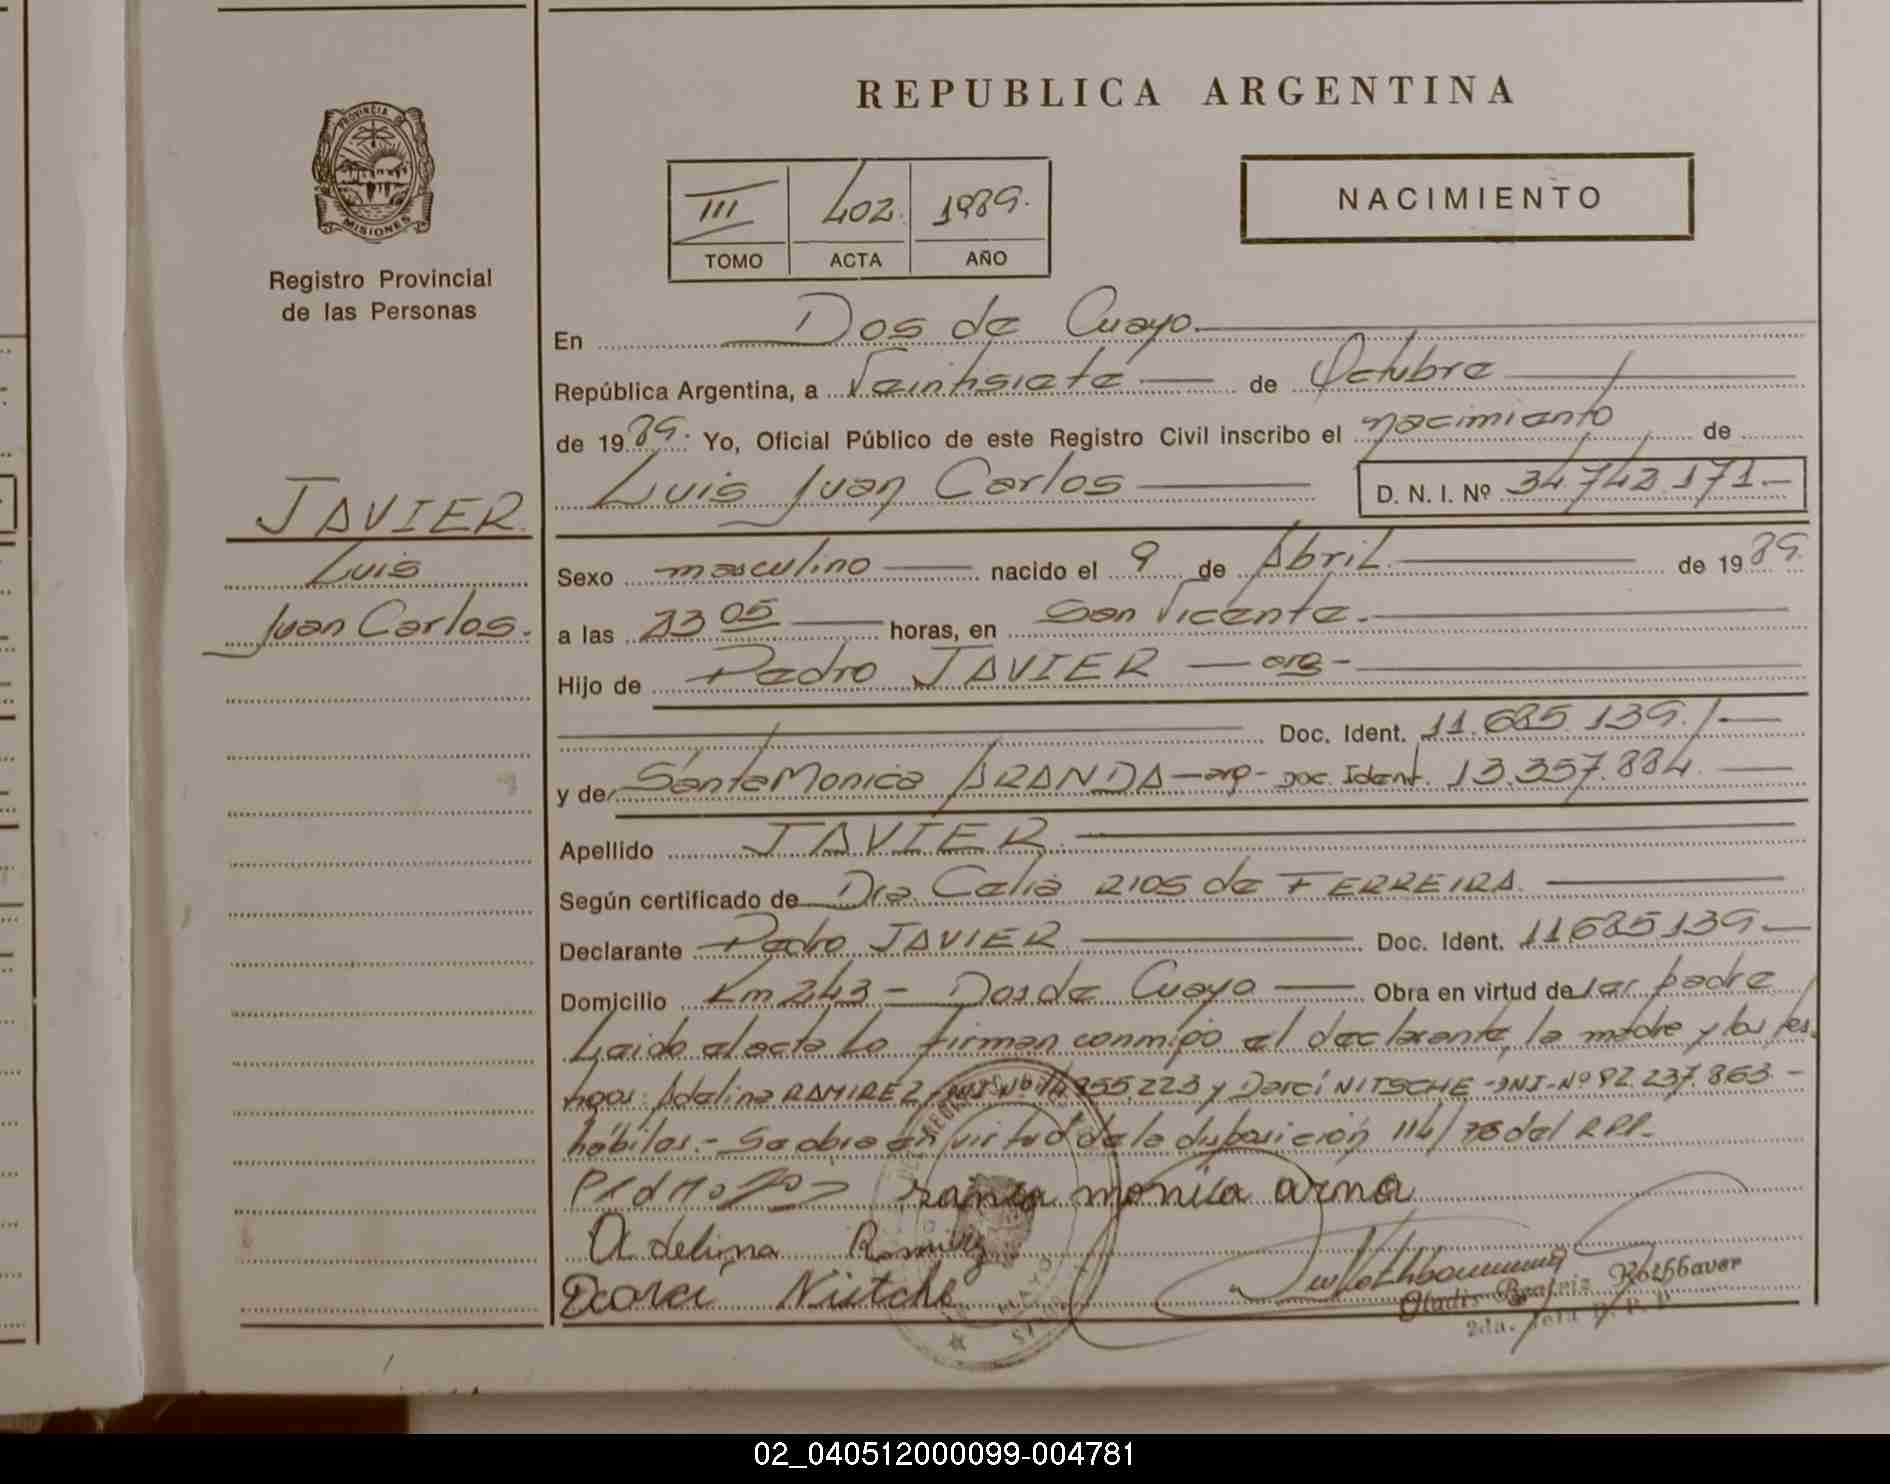 REPUBLICA ARGENTINA
PROVINCIA DE
MISIONES
Registro Provincial
de las Personas
III 402. 1989.
TOMO ACTA AÑO
NACIMIENTO
JAVIER
Luis
Juan Carlos.
En Dos de Mayo.
República Argentina, a Veintisiete de Octubre
de 19 89. Yo, Oficial Público de este Registro Civil inscribo el nacimiento de
Luis Juan Carlos D. N. I. Nº 34.742.171.-
Sexo masculino nacido el 9 de Abril. de 19 89.
a las 23 05 horas, en San Vicente.
Hijo de Pedro JAVIER - arg -
Doc. Ident. 11.685.139./-
y de Santa Monica ARANDA - arg - Doc. Ident. 13.357.884.
Apellido JAVIER.
Según certificado de Dra. Celia RIOS de FERREIRA.
Declarante Pedro JAVIER Doc. Ident. 11685139-
Domicilio Km 243 - Dos de Mayo Obra en virtud de ser padre
Leido el acta lo firman conmigo el declarante, la madre y los tes
tigos: Adelina RAMIREZ 255.223 y Darci NITSCHE - DNI - Nº 92.237.863.-
hábiles.- Se obra en virtud de la disposición 114/78 del RPP.
santa monica arna
Adelina Ramirez
Darci Nistche
Gladis Beatriz Rothbauer
2da. Jefa R. P. P.
02_040512000099-004781